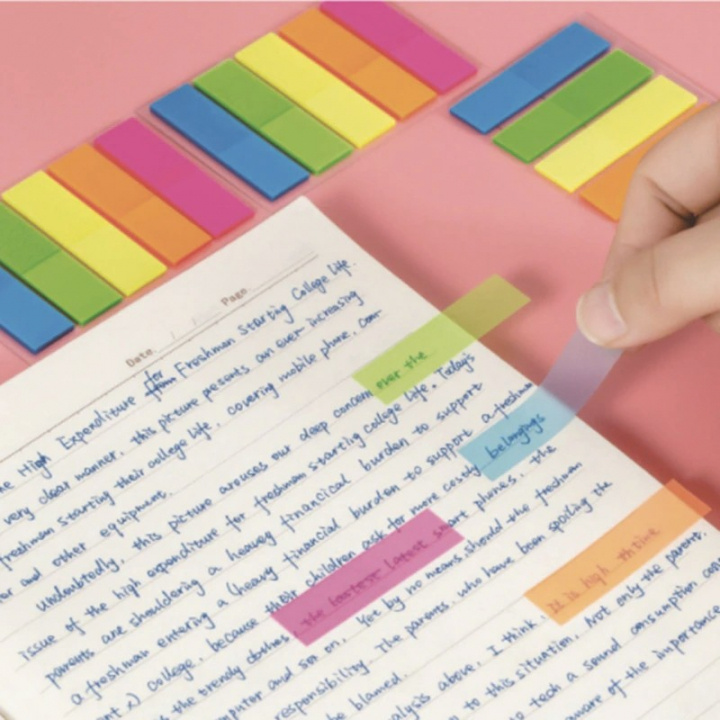 Date. / / Page.
he High Expenditure for Freshman Starting College Life.
very clear manner, this picture presents an ever increasing
freshman starting their college life, covering mobile phone, com
er and other equipment.
Undoubtedly, this picture arouses our deep concern over the
issue of the high expenditure for freshman starting college life. Today's
parents are shouldering a heavy financial burden to support
a freshman entering a (heavy financial burden to support a freshm
ent x) college, because their children ask for more costly belongings
s the trendy clothes, the lastest latest smart phones, the
mputer and so on. Yet by no means should the freshman
responsibility. The parents, who have been spoiling the
be blamed.
alysis above, I think, it is high thtime
to this situation. Not only the parent
o tech a sound consumption con
ware of the importance